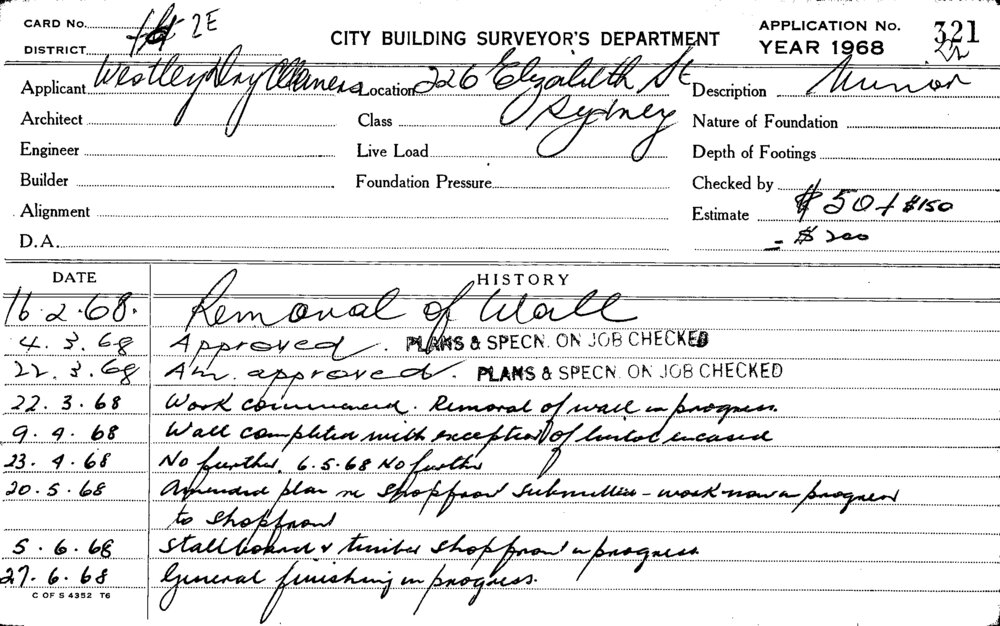 CARD No. 2E
DISTRICT
CITY BUILDING SURVEYOR'S DEPARTMENT
APPLICATION No. 321
YEAR 1968
Applicant Westley Dry Cleaners Location 226 Elizabeth St Description Minor
Architect Class Sydney Nature of Foundation
Engineer Live Load Depth of Footings
Builder Foundation Pressure Checked by
Alignment Estimate $50 + $150
D.A. = $200
DATE HISTORY
16.2.68. Removal of Wall
4.3.68 Approved. PLANS & SPECN. ON JOB CHECKED
22.3.68 Am. approved. PLANS & SPECN. ON JOB CHECKED
22.3.68 Work commenced. Removal of wall in progress.
9.4.68 Wall completed with exception of lintol encased
23.4.68 No further. 6.5.68 No further
20.5.68 Amended plan re shopfront submitted - work now in progress
to shopfront
5.6.68 Stallboard & timber shopfront in progress
27.6.68 General finishing in progress.
C OF S 4352 T6